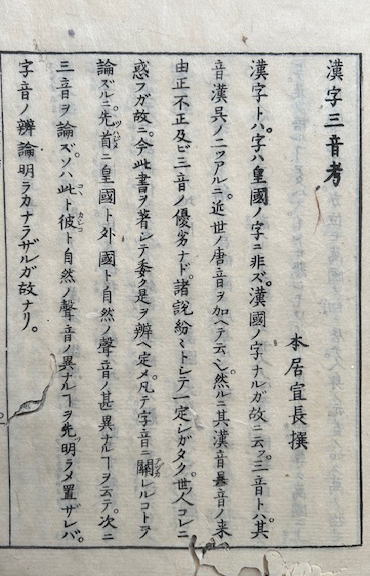 漢字三音考
本居宣長撰
漢字トハ。字ハ皇國ノ字ニ非ズ。漢國ノ字ナルガ故ニ云フ。三音トハ。其
音漢呉ノ二ツアルニ。近世ノ唐音ヲ加ヘテ云ヘシ。然ルニ其漢音呉音ノ来
由正不正及ビ三音ノ優劣ナド。諸説紛々トシテ一定シガタク。世人コレニ
惑フガ故ニ。今此書ヲ著シテ委ク是ヲ辨ヘ定メ。凡テ字音ニ關レルコトヲ
論ズルニ。先ツ首ニ皇國ト外國ト自然ノ聲音ノ甚異ナルヿヲ云テ。次ニ
三音ヲ論ズ。ソハ此ト彼ト自然ノ聲音ノ異ナルヿヲ先ツ明ラメ置ザレバ。
字音ノ辨論明ラカナラザルガ故ナリ。